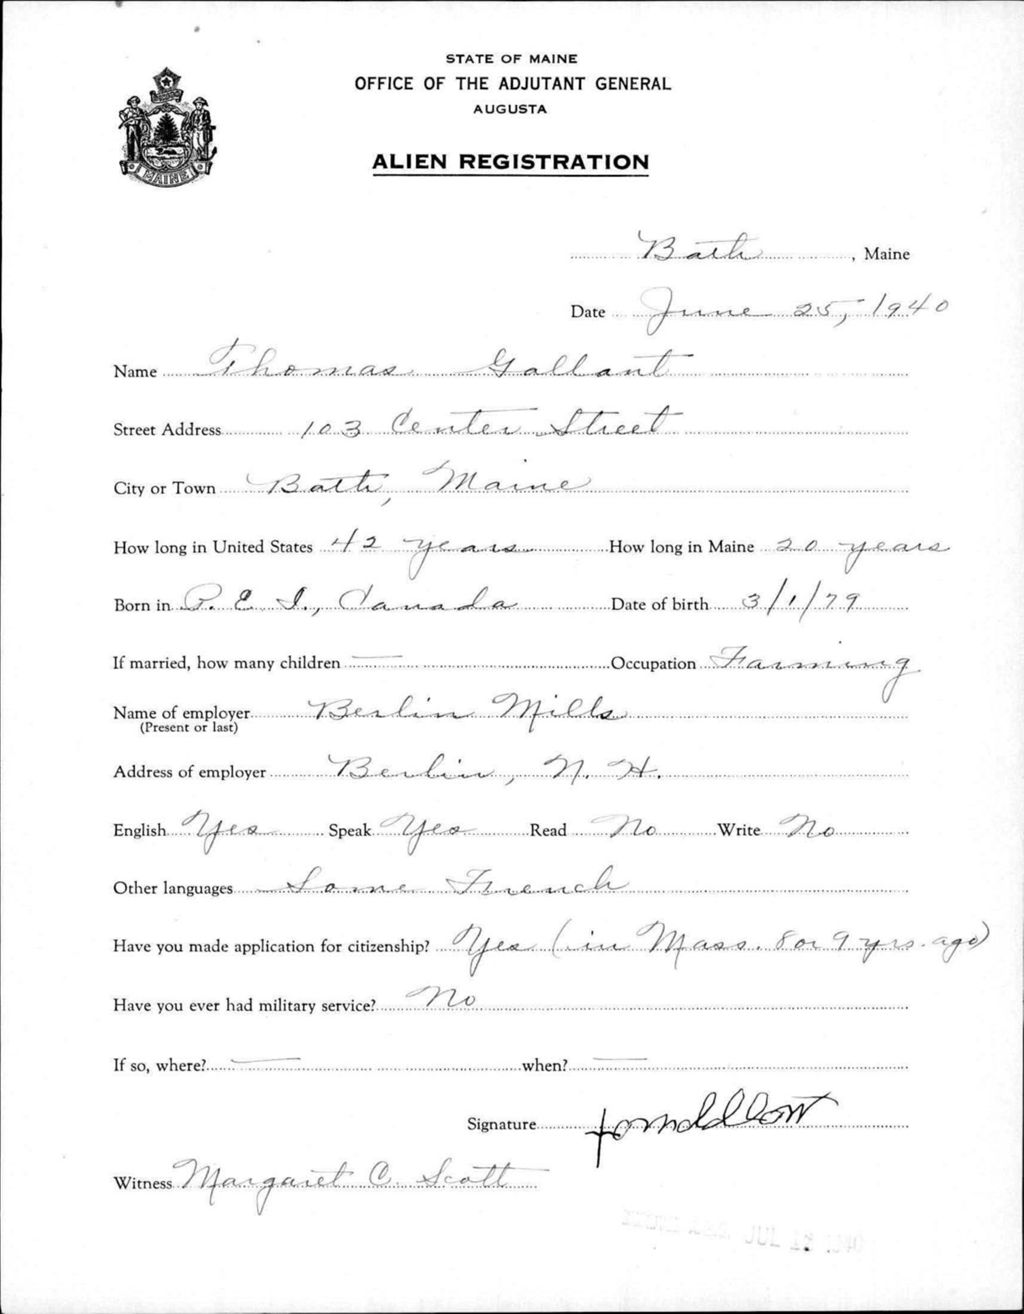 STATE OF MAINE
OFFICE OF THE ADJUTANT GENERAL
AUGUSTA
ALIEN REGISTRATION
MAINE
Bath, Maine
Date June 25, 1940
Name Thomas Gallant
Street Address 103 Center Street
City or Town Bath, Maine
How long in United States 42 years How long in Maine 20 years
Born in P. E. I., Canada Date of birth 3/1/79
If married, how many children — Occupation Farming
Name of employer Berlin Mills
(Present or last)
Address of employer Berlin, N. H.
English Yes Speak Yes Read No Write No
Other languages Some French
Have you made application for citizenship? Yes (in Mass. 8 or 9 yrs. ago)
Have you ever had military service? No
If so, where? — when? —
Signature
Witness Margaret C. Scott
JUL 1940